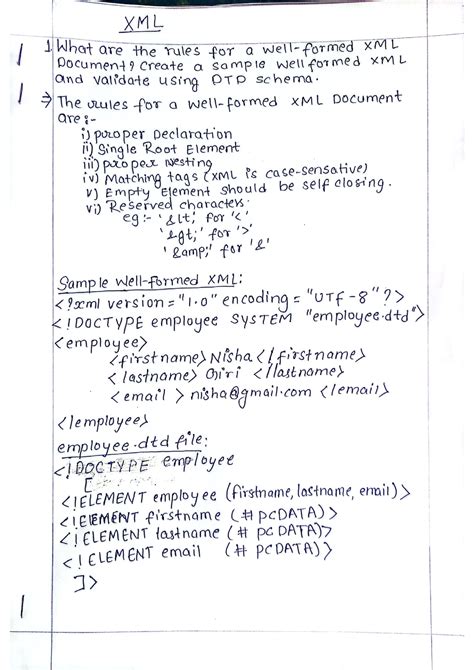 XML
1. What are the rules for a well-formed XML
Document? Create a sample well formed XML
and validate using DTD schema.
⇒ The rules for a well-formed XML Document
are :-
i) proper Declaration
ii) Single Root Element
iii) proper nesting
iv) Matching tags (XML is case-sensative)
v) Empty Element should be self closing.
vi) Reserved characters.
eg:- '&lt; for '<'
'&gt;' for '>'
'&amp;' for '&'
Sample Well-Formed XML:
<?xml version = "1.0" encoding = "UTF-8" ?>
<!DOCTYPE employee SYSTEM "employee.dtd">
<employee>
<firstname> Nisha </firstname>
<lastname> Giri </lastname>
<email > nisha@gmail.com </email>
</employee>
employee.dtd file:
<!DOCTYPE employee
[
<!ELEMENT employee (firstname, lastname, email)>
<!ELEMENT firstname (# PCDATA)>
<!ELEMENT lastname (# PCDATA)>
<!ELEMENT email (# PCDATA)>
]>